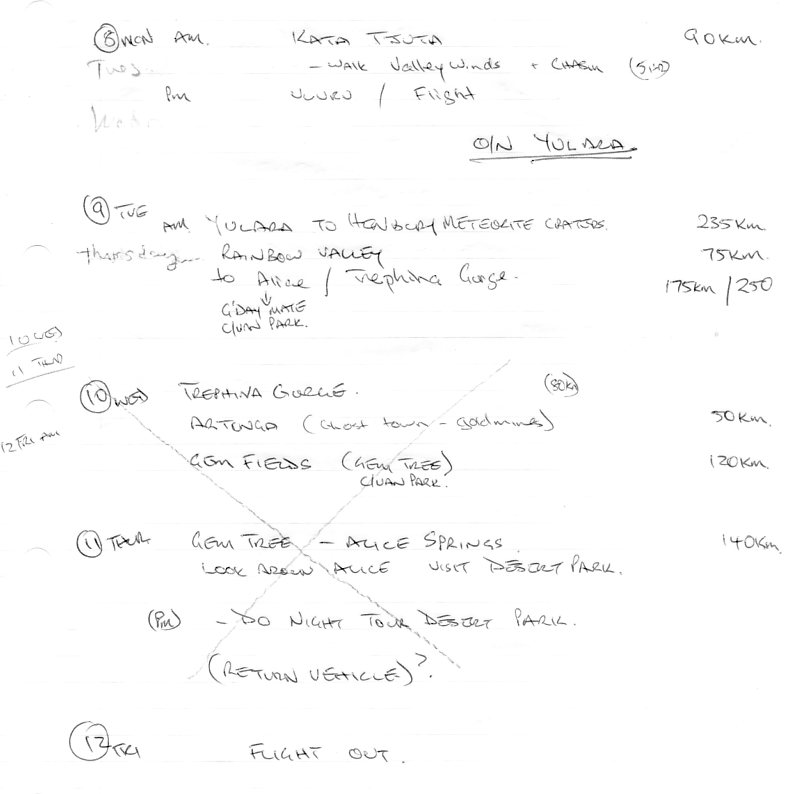 8 MON AM. KATA TJUTA 90KM.
Tues - WALK Valley Winds + CHASM
PM ULURU / Flight
O/N YULARA.
9 TUE AM. YULARA TO HENBURY METEORITE CRATERS. 235KM
Thursday RAINBOW VALLEY 75KM.
to Alice / Trephina Gorge. 175km / 250
G'DAY MATE
C/VAN PARK.
10 WED
11 THU
10 WED TREPHINA GORGE. (80KM)
ARTUNGA (Ghost town - goldmines) 50KM.
12 FRI AM
GEM FIELDS (GEM TREE) 120KM.
C/VAN PARK.
11 THUR GEM TREE - ALICE SPRINGS. 140KM.
LOOK AROUN ALICE VISIT DESERT PARK.
(PM) - DO NIGHT TOUR DESERT PARK.
(RETURN VEHICLE)?.
12 FRI FLIGHT OUT.